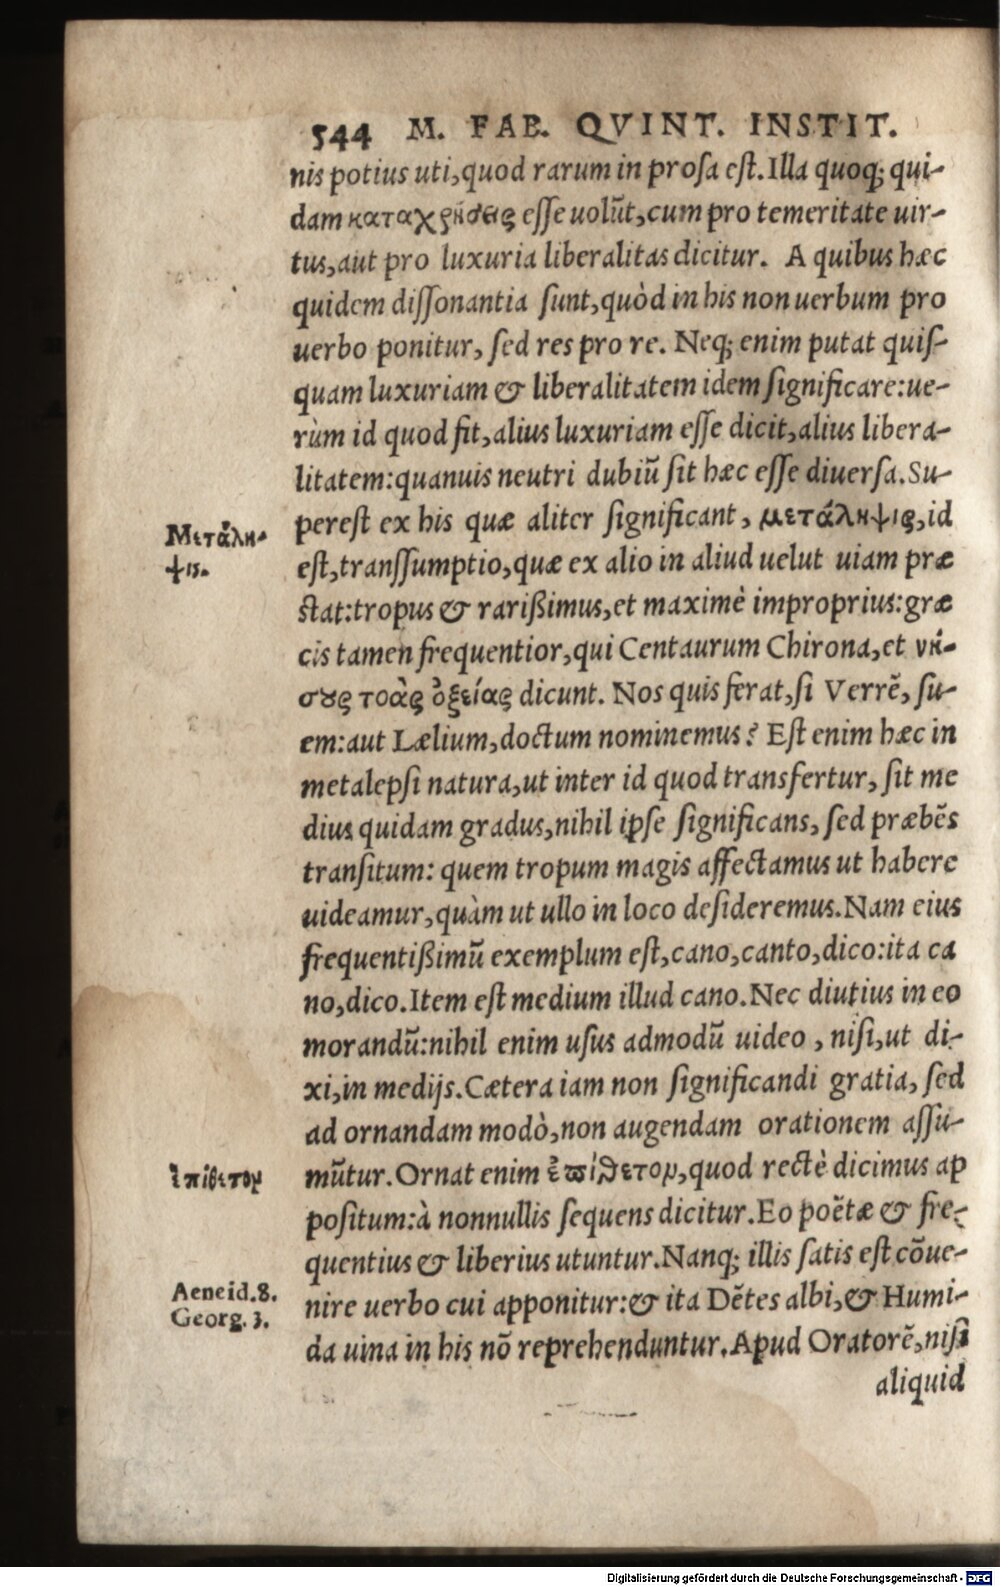 544 M. FAB. QVINT. INSTIT.
nis potius uti, quod rarum in prosa est. Illa quoq; qui-
dam καταχρήσεις esse uolūt, cum pro temeritate uir-
tus, aut pro luxuria liberalitas dicitur. A quibus hæc
quidem dissonantia sunt, quòd in his non uerbum pro
uerbo ponitur, sed res pro re. Neq; enim putat quis-
quam luxuriam & liberalitatem idem significare: ue-
rùm id quod fit, alius luxuriam esse dicit, alius libera-
litatem: quanuis neutri dubiū sit hæc esse diuersa. Su-
Μετάλη-
ψις.
perest ex his quæ aliter significant, μετάληψις, id
est, transsumptio, quæ ex alio in aliud uelut uiam præ
stat: tropus & rarißimus, et maximè improprius: græ
cis tamen frequentior, qui Centaurum Chirona, et νή-
σους τοὰς ὀξείας dicunt. Nos quis ferat, si Verrē, su-
em: aut Lælium, doctum nominemus? Est enim hæc in
metalepsi natura, ut inter id quod transfertur, sit me
dius quidam gradus, nihil ipse significans, sed præbēs
transitum: quem tropum magis affectamus ut habere
uideamur, quàm ut ullo in loco desideremus. Nam eius
frequentißimū exemplum est, cano, canto, dico: ita ca
no, dico. Item est medium illud cano. Nec diutius in eo
morandū: nihil enim usus admodū uideo, nisi, ut di-
xi, in medijs. Cætera iam non significandi gratia, sed
ad ornandam modò, non augendam orationem assu-
ἐπίθετον
mūtur. Ornat enim ἐπίθετον, quod rectè dicimus ap
positum: à nonnullis sequens dicitur. Eo poëtæ & fre-
quentius & liberius utuntur. Nanq; illis satis est cōue-
Aeneid. 8.
Georg. 3.
nire uerbo cui apponitur: & ita Dētes albi, & Humi-
da uina in his nō reprehenduntur. Apud Oratorē, nisi
aliquid
Digitalisierung gefördert durch die Deutsche Forschungsgemeinschaft - DFG